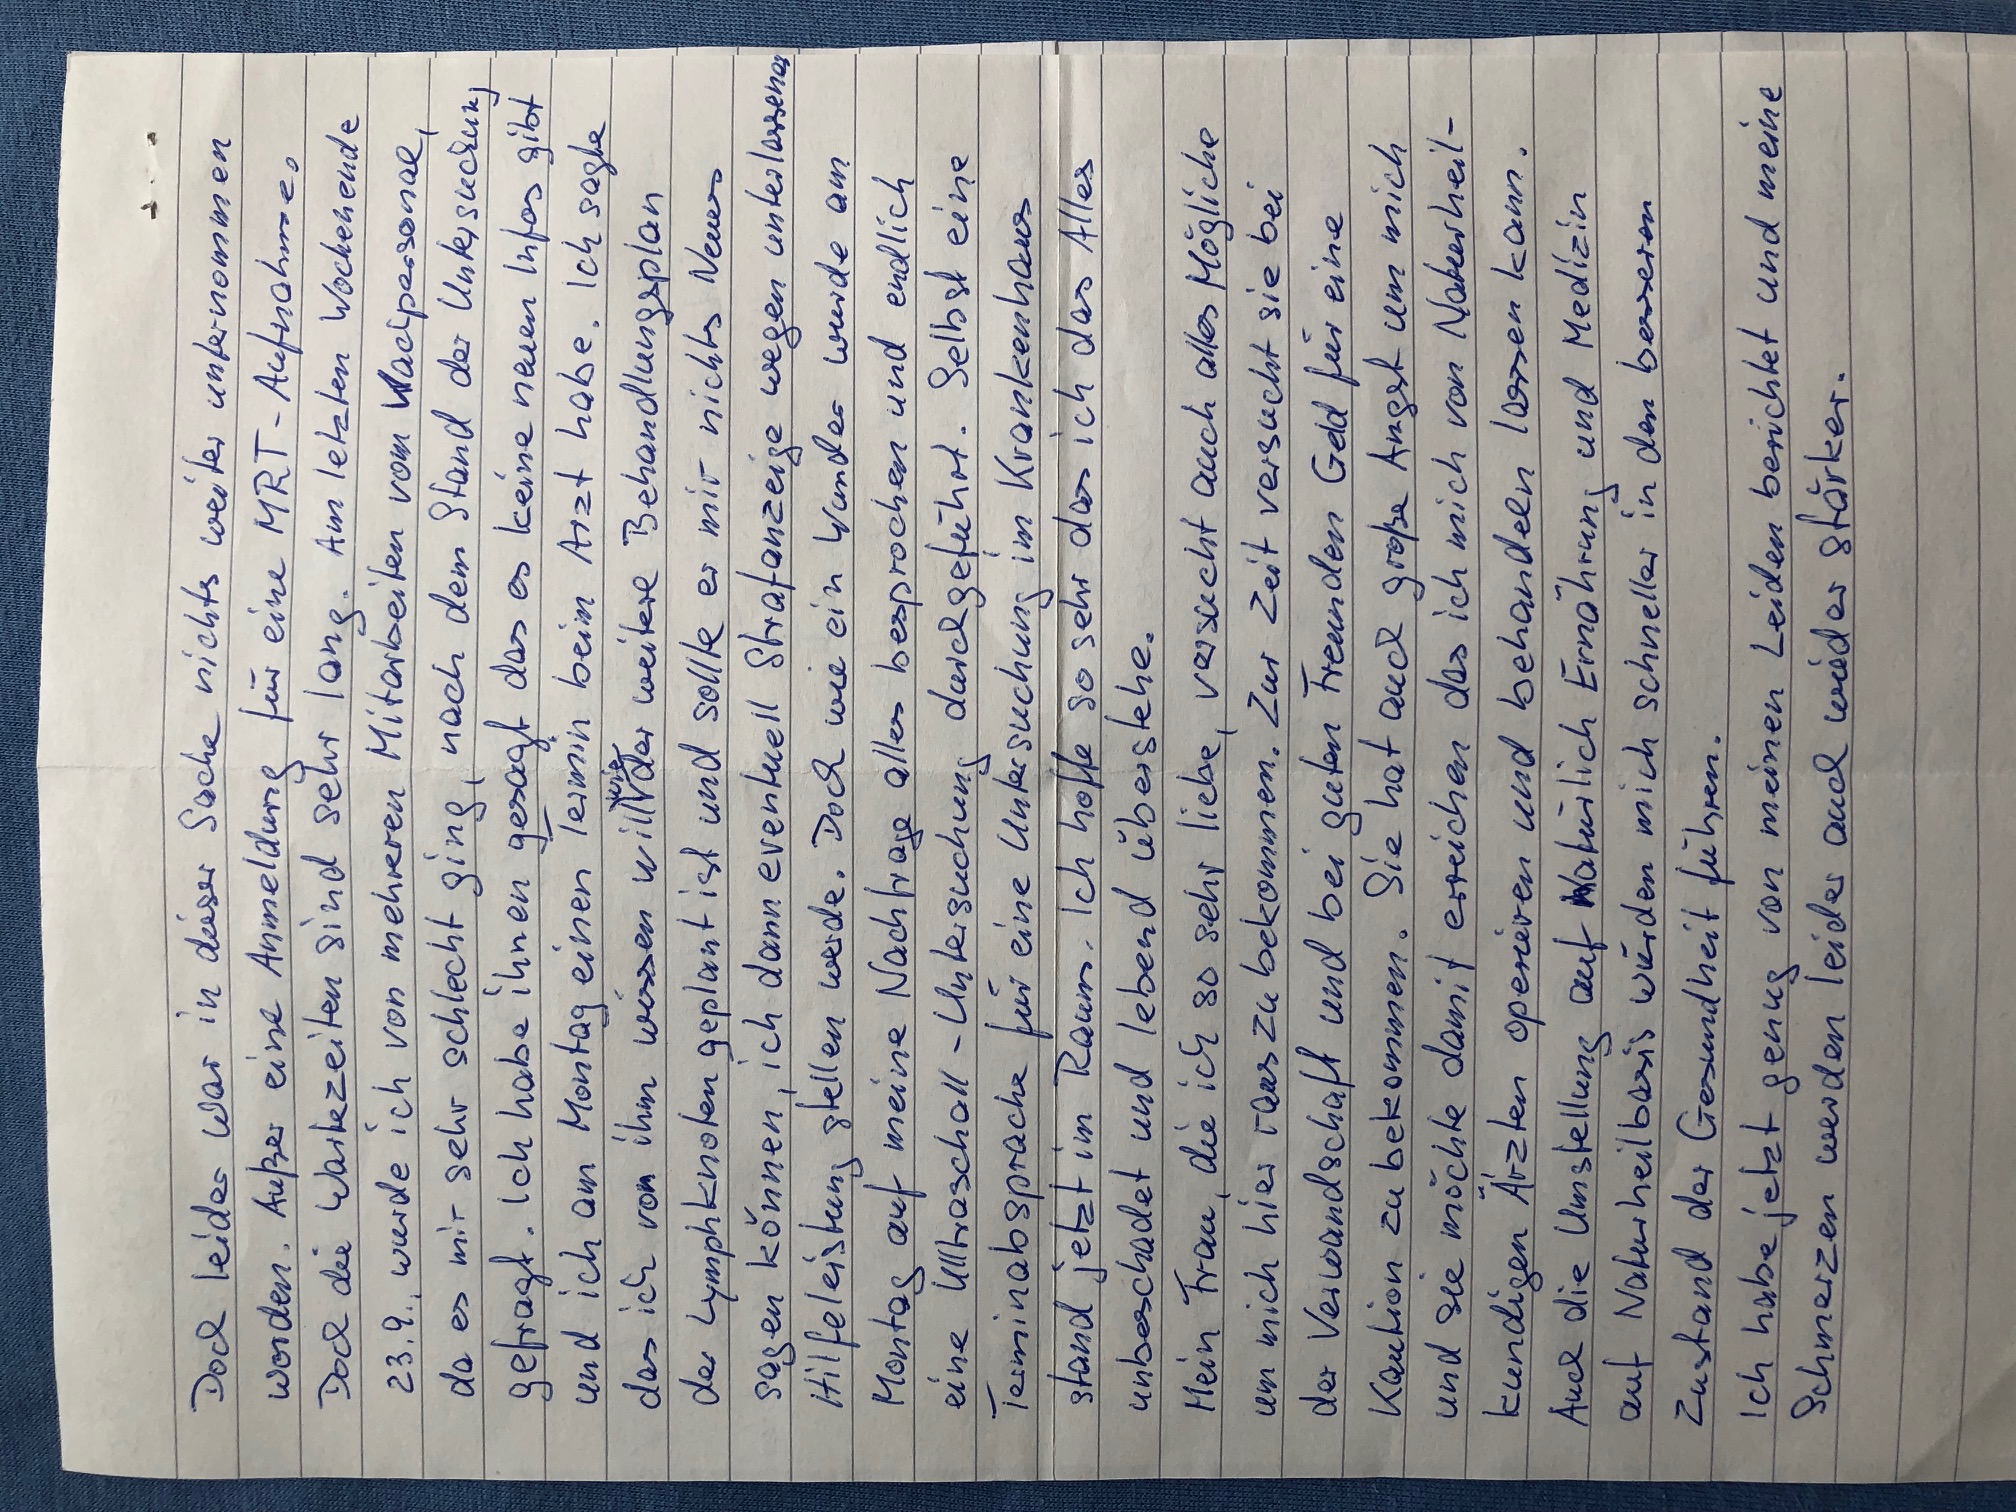 Doch leider war in dieser Sache nichts weiter unternommen
worden. Außer eine Anmeldung für eine MRT-Aufnahme.
Doch die Wartezeiten sind sehr lang. Am letzten Wochenende
23.9., wurde ich von mehreren Mitarbeiten vom Wachpersonal,
da es mir sehr schlecht ging, nach dem Stand der Untersuchung
gefragt. Ich habe ihnen gesagt das es keine neuen Infos gibt
und ich am Montag einen Termin beim Arzt habe. Ich sagte
das ich von ihm wissen will wie der weitere Behandlungsplan
der Lymphknoten geplant ist und sollte er mir nichts Neues
sagen können, ich dann eventuell Strafanzeige wegen unterlassener
Hilfeleistung stellen werde. Doch wie ein Wunder wurde am
Montag auf meine Nachfrage alles besprochen und endlich
eine Ultraschall-Untersuchung durchgeführt. Selbst eine
Terminabsprache für eine Untersuchung im Krankenhaus
stand jetzt im Raum. Ich hoffe so sehr das ich das Alles
unbeschadet und lebend überstehe.
Mein Frau, die ich so sehr liebe, versucht auch alles Mögliche
um mich hier raus zu bekommen. Zur Zeit versucht sie bei
der Verwandschaft und bei guten Freunden Geld für eine
Kaution zu bekommen. Sie hat auch große Angst um mich
und sie möchte damit erreichen das ich mich von Naturheil-
kundigen Ärzten operieren und behandeln lassen kann.
Auch die Umstellung auf Natürlich Ernährung und Medizin
auf Naturheilbasis würden mich schneller in den bessern
Zustand der Gesundheit führen.
Ich habe jetzt genug von meinen Leiden berichtet und meine
Schmerzen werden leider auch wieder stärker.